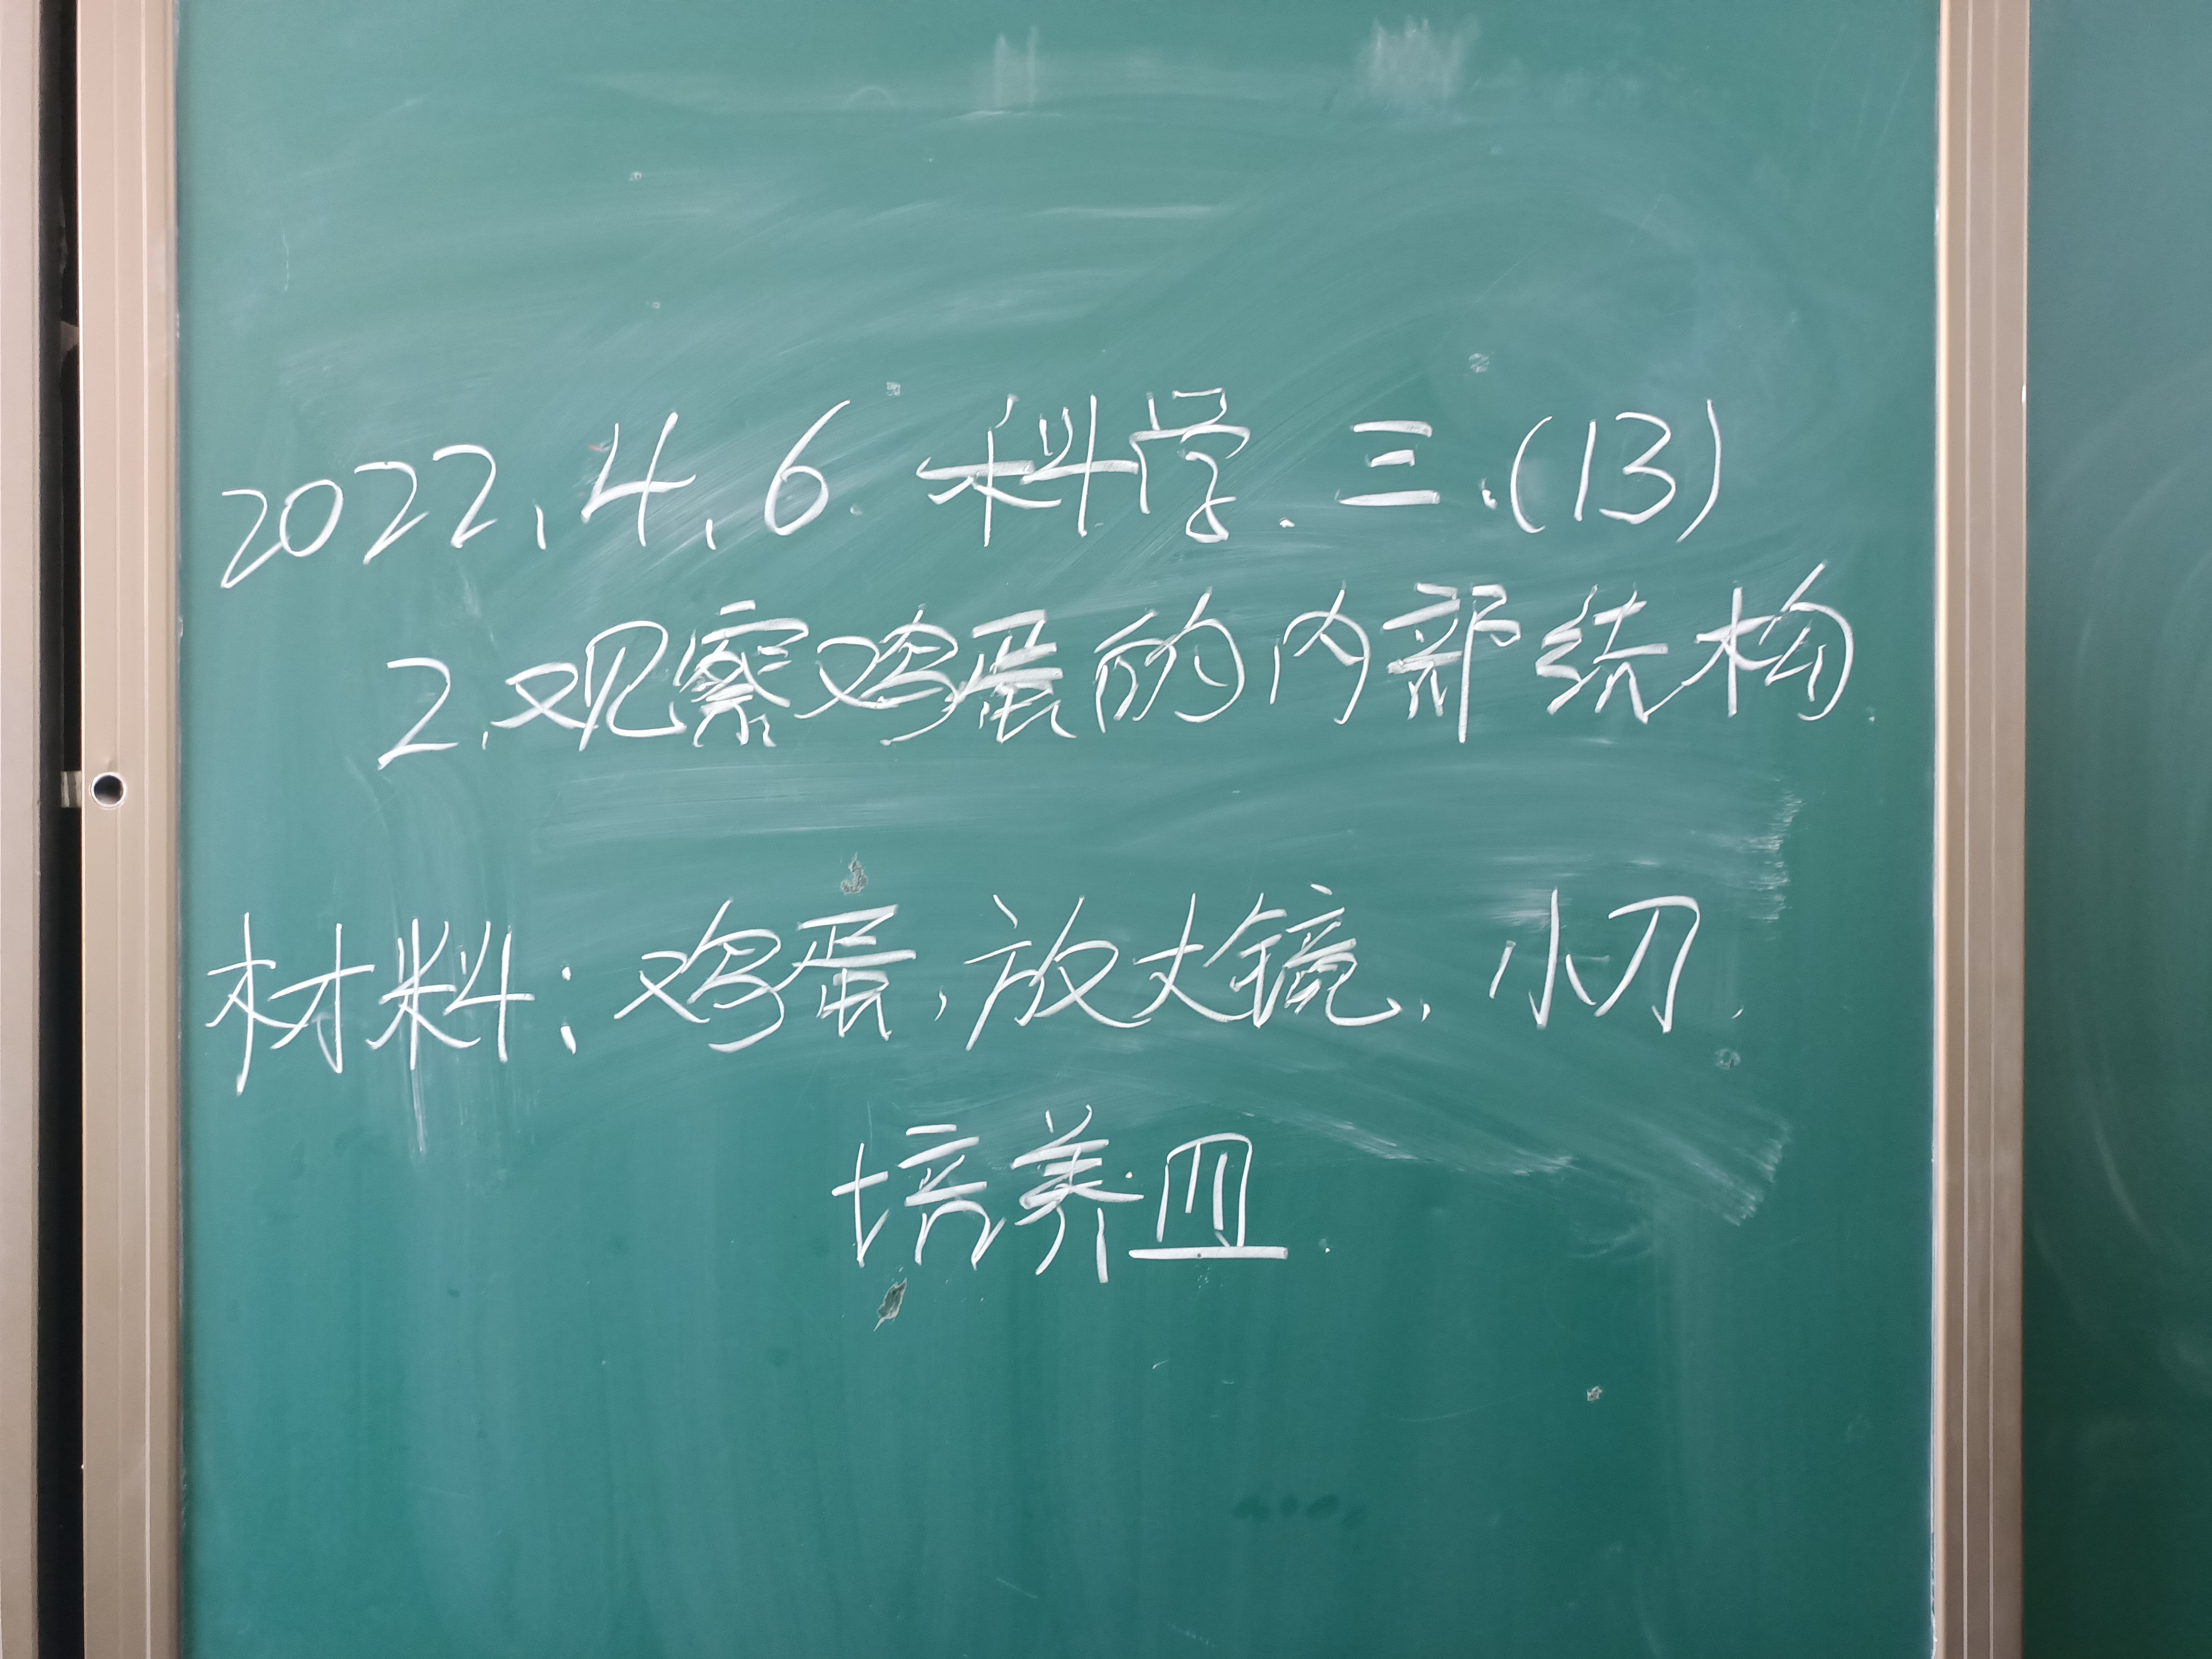 2022.4.6. 科学. 三.(13)
2.观察鸡蛋的内部结构.
材料:鸡蛋,放大镜,小刀.
培养皿.